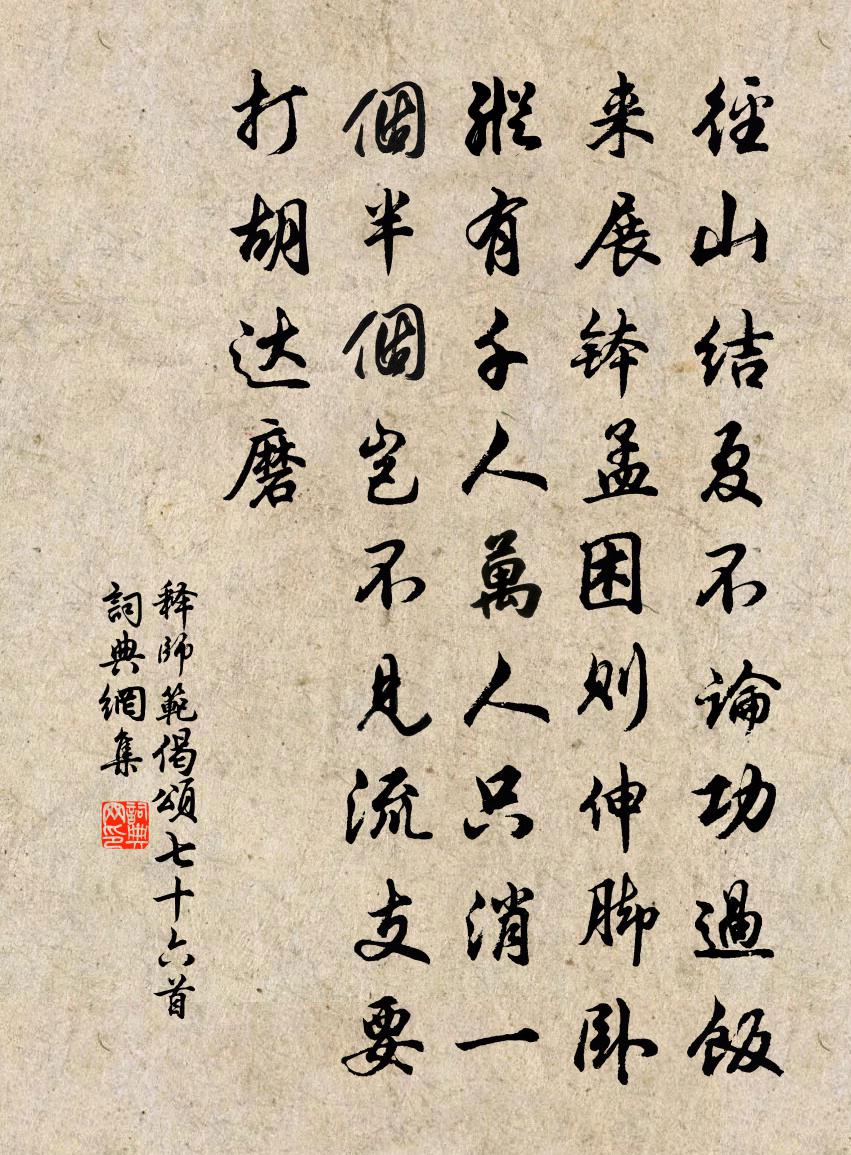 徑山結夏不論功過飯
来展鉢盂困則伸脚卧
縱有千人萬人只消一
個半個豈不見流支要
打胡达磨
释師範偈頌七十六首
詞典網集
詞典网印